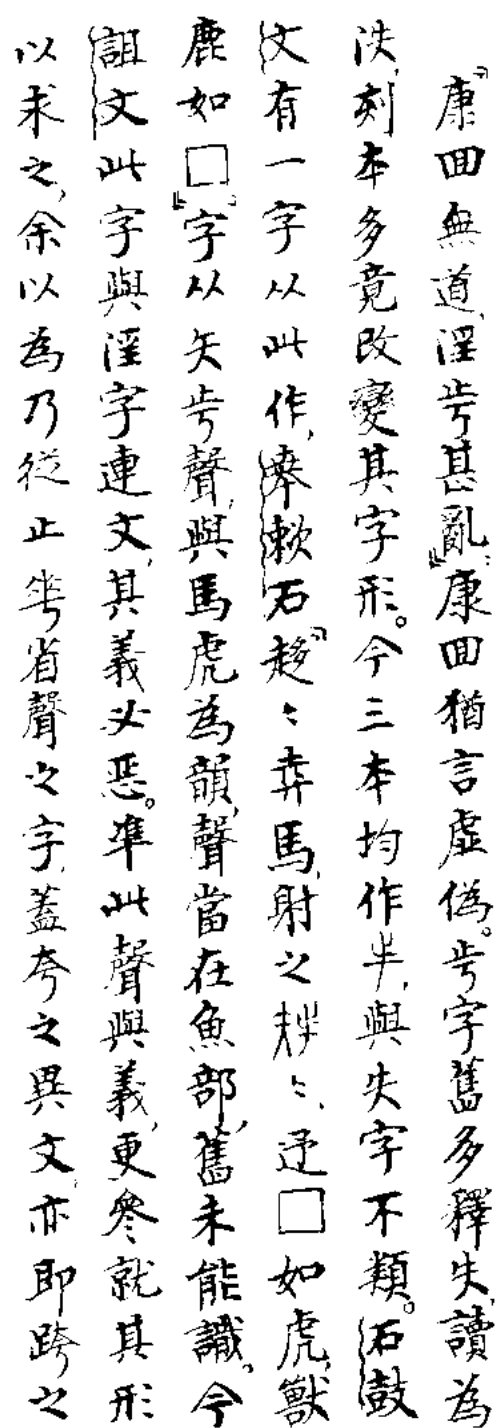 『康回無道，淫㱏甚亂。』康回猶言虛偽。㱏字舊多釋失，讀為
泆，刻本多竟改變其字形。今三本均作，與失字不類。石鼓
文有一字从此作，石『趍〻馬，射之〻，迂□如虎，獸
鹿如□。』字从矢㱏聲，與馬虎為韻，聲當在魚部，舊未能識。今
詛文此字與淫字連文，其義必惡。準此聲與義，更參就其形
以求之，余以為乃從止省聲之字，蓋夸之異文，亦即跨之